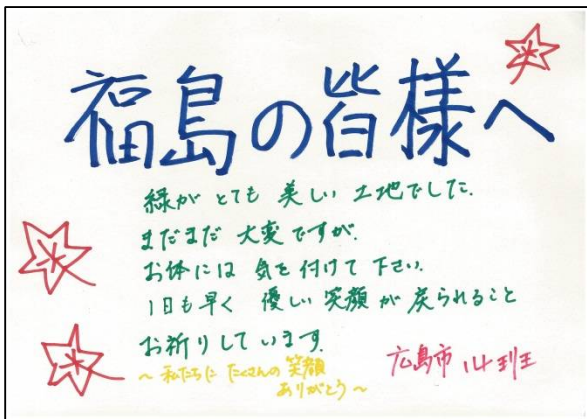 福島の皆様へ
緑がとても美しい土地でした.
まだまだ大変ですが.
お体には気を付けて下さい.
1日も早く優しい笑顔が戻られること
お祈りしています.
~私たちにたくさんの笑顔
ありがとう~
広島市 14班